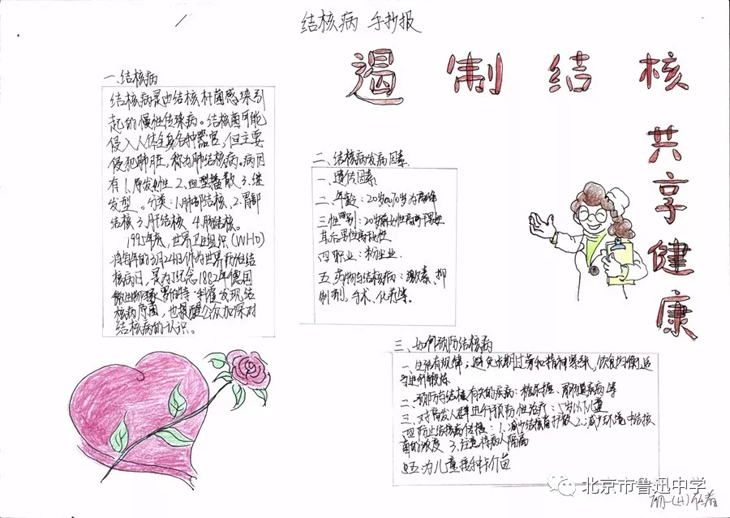 结核病 手抄报
遏制结核
共享健康
一.结核病
结核病是由结核杆菌感染引
起的慢性传染病。结核菌可能
侵入人体全身各种器官,但主要
侵犯肺脏,称为肺结核病。病因
有1.原发
2.血型播散 3.继
发型。分类:1.肺部结核 2.胃部
结核 3.肝结核 4.肠结核。
1995年底,世界卫生组织(WHO)
将每年的3月24日作为世界防治结
核病日,是为了纪念1882年德国
罗伯特·科霍发现结
核病病菌,也提醒公众加深对
结核病的认识。
二、结核病发病因素
一、遗传因素
二、年龄:20岁
三、性别:20岁
四、职业:粉尘业
五、药物与结核病:激素、抑
制剂、手术、化疗等。
三、如何预防结核病
一、生活有规律:避免长期过劳和精神紧张,饮食
二、预防与结核有关的疾病:糖尿病、
三、对易发人群进行预防性治疗:
四、防止结核病传播:1.减少结核菌扩散 2.减少环境中结核
菌的浓度 3.注意病人隔离
五、为儿童接种卡介苗
北京市鲁迅中学